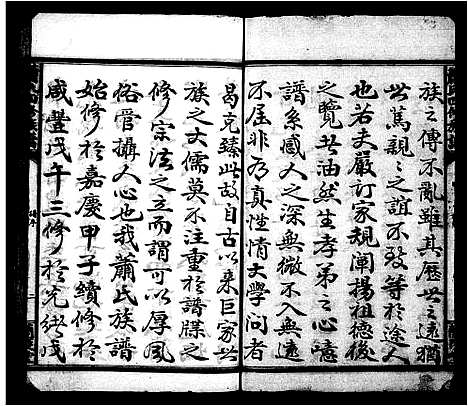 族之傳不亂雖其歷世之遠猶
此篤親親之誼不致等於途人
也若夫嚴訂家規闡揚祖德後
之覽此油然生孝弟之心噫
譜系感人之深無微不入無遠
不屆非為真性情大學問者
曷克臻此故自古以來巨家世
族之大儒莫不注重於譜牒之
修宗法之立而謂可以厚風
俗管攝人心也我蕭氏族譜
始修於嘉慶甲子續修於
咸豐戊午三修於光緒戊